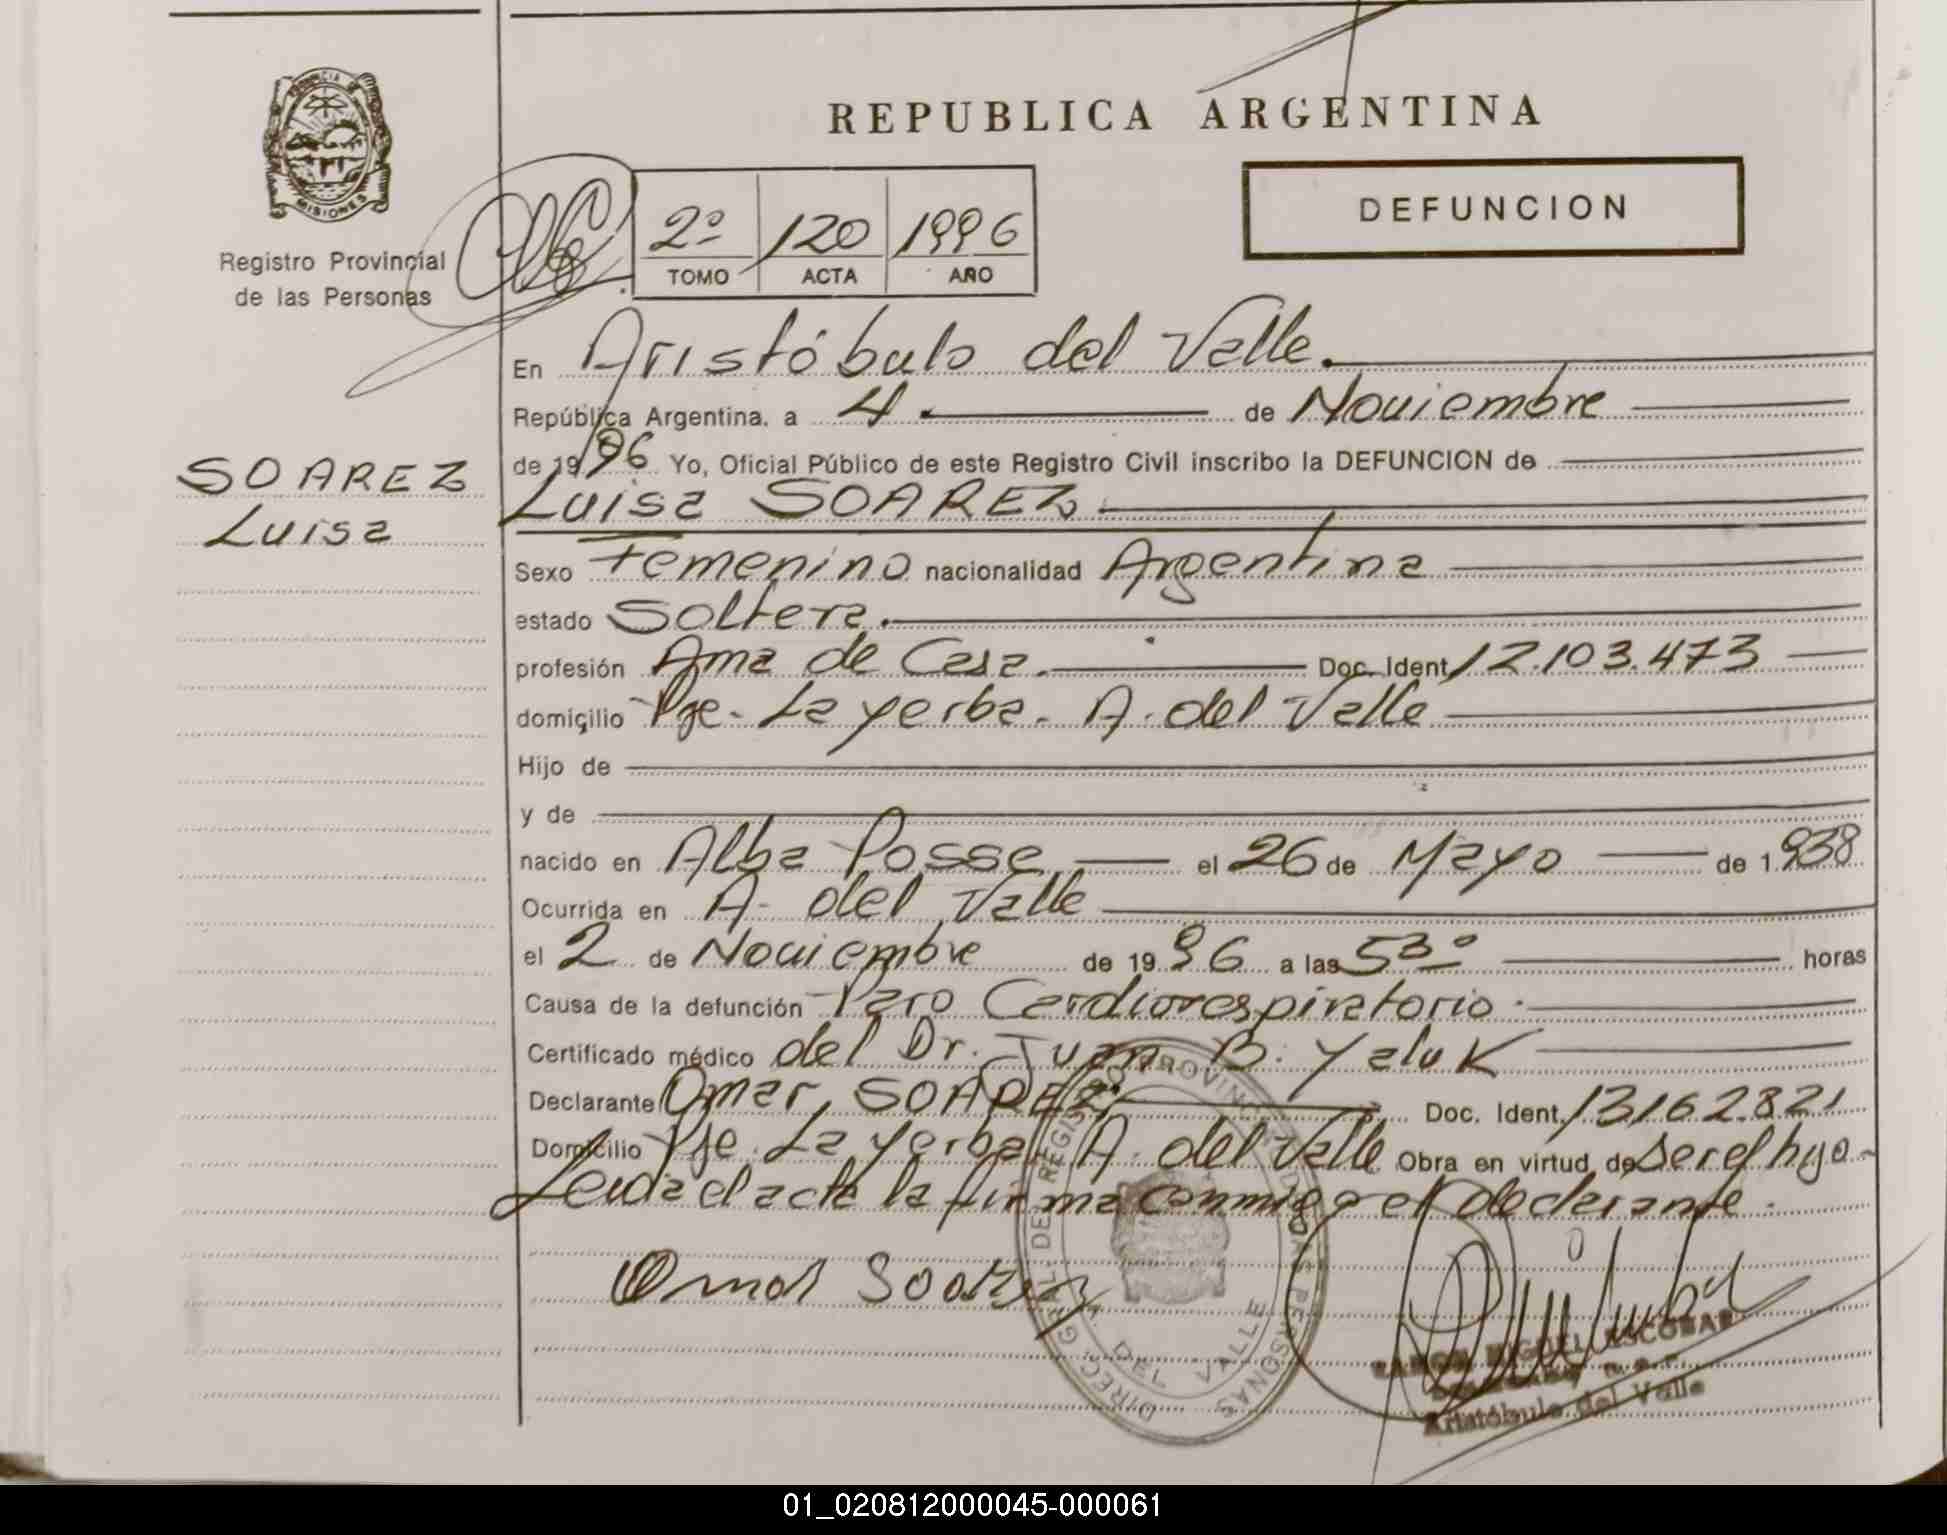 REPUBLICA ARGENTINA
PROVINCIA DE
MISIONES
Registro Provincial
de las Personas
2º 120 1996
TOMO ACTA AÑO
DEFUNCION
SOAREZ
Luisa
En Aristóbulo del Valle.
República Argentina, a 4 de Noviembre
de 1996 Yo, Oficial Público de este Registro Civil inscribo la DEFUNCION de
Luisa SOAREZ
Sexo Femenino nacionalidad Argentina
estado Soltera.
profesión Ama de Casa. Doc. Ident. 12.103.473
domicilio Pje. La yerba. A. del Valle
Hijo de
y de
nacido en Alba Posse el 26 de Mayo de 1.938
Ocurrida en A. del Valle
el 2 de Noviembre de 1996 a las 5 3º horas
Causa de la defunción Paro Cardiorespiratorio.
Certificado médico del Dr. Juan B. Yaluk
Declarante Omar SOAREZ Doc. Ident. 13162.821
Domicilio Pje. La Yerba A. del Valle Obra en virtud de ser el hijo-
Leida el acta la firma conmigo el declarante.
Omar Soarez
DIREC. GRAL. DEL REGISTRO PROVINCIAL DE LAS PERSONAS
DEL VALLE
RAMON MIGUEL ESCOBAR
Aristóbulo del Valle
01_020812000045-000061